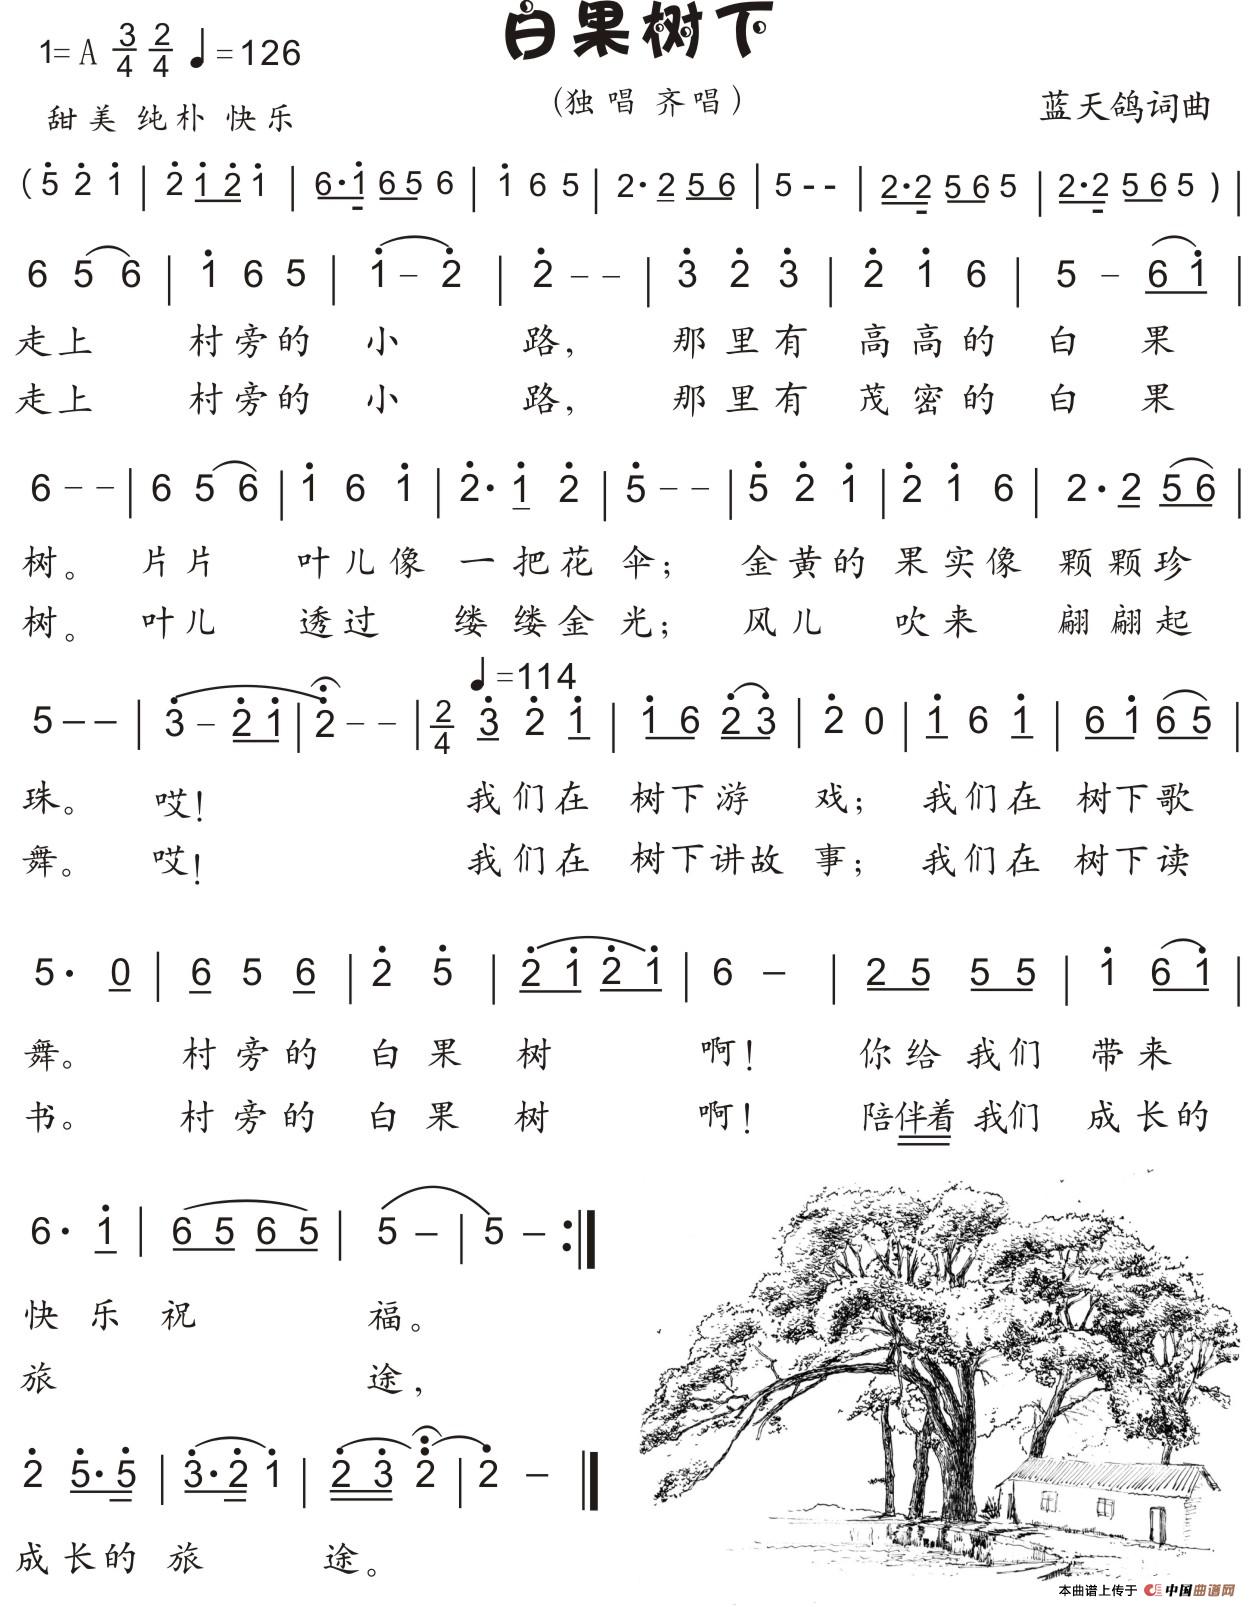 白果树下
1=A 3/4 2/4 ♩=126
(独唱 齐唱)
甜美 纯朴 快乐
蓝天鸽词曲
(5̇ 2̇ 1̇ | 2̇ 1̇ 2̇ 1̇ | 6·1̇ 6 5 6 | 1̇ 6 5 | 2·2 5 6 | 5 - - | 2·2 5 6 5 | 2·2 5 6 5 ) |
6 5 6 | 1̇ 6 5 | 1̇ - 2̇ | 2̇ - - | 3̇ 2̇ 3̇ | 2̇ 1̇ 6 | 5 - 6 1̇ |
走上 村旁的 小 路, 那里有 高高的 白 果
走上 村旁的 小 路, 那里有 茂密的 白 果
6 - - | 6 5 6 | 1̇ 6 1̇ | 2̇· 1̇ 2̇ | 5̇ - - | 5̇ 2̇ 1̇ | 2̇ 1̇ 6 | 2· 2 5 6 |
树。 片片 叶儿像 一把花 伞; 金黄的 果实像 颗颗珍
树。 叶儿 透过 缕缕金 光; 风儿 吹来 翩翩起
♩=114
5 - - | 3̇ - 2̇ 1̇ | 2̇ - - | 2/4 3̇ 2̇ 1̇ | 1̇ 6 2̇ 3̇ | 2̇ 0 | 1̇ 6 1̇ | 6 1̇ 6 5 |
珠。 哎! 我们在 树下游 戏; 我们在 树下歌
舞。 哎! 我们在 树下讲故 事; 我们在 树下读
5· 0 | 6 5 6 | 2̇ 5̇ | 2̇ 1̇ 2̇ 1̇ | 6 - | 2 5 5 5 | 1̇ 6 1̇ |
舞。 村旁的 白果 树 啊! 你给我们 带来
书。 村旁的 白果 树 啊! 陪伴着我们 成长的
6· 1̇ | 6 5 6 5 | 5 - | 5 - :|
快乐祝 福。
旅 途,
2̇ 5̇·5̇ | 3̇·2̇ 1̇ | 2̇ 3̇ 2̇ | 2̇ - ‖
成长的 旅 途。
本曲谱上传于 中国曲谱网